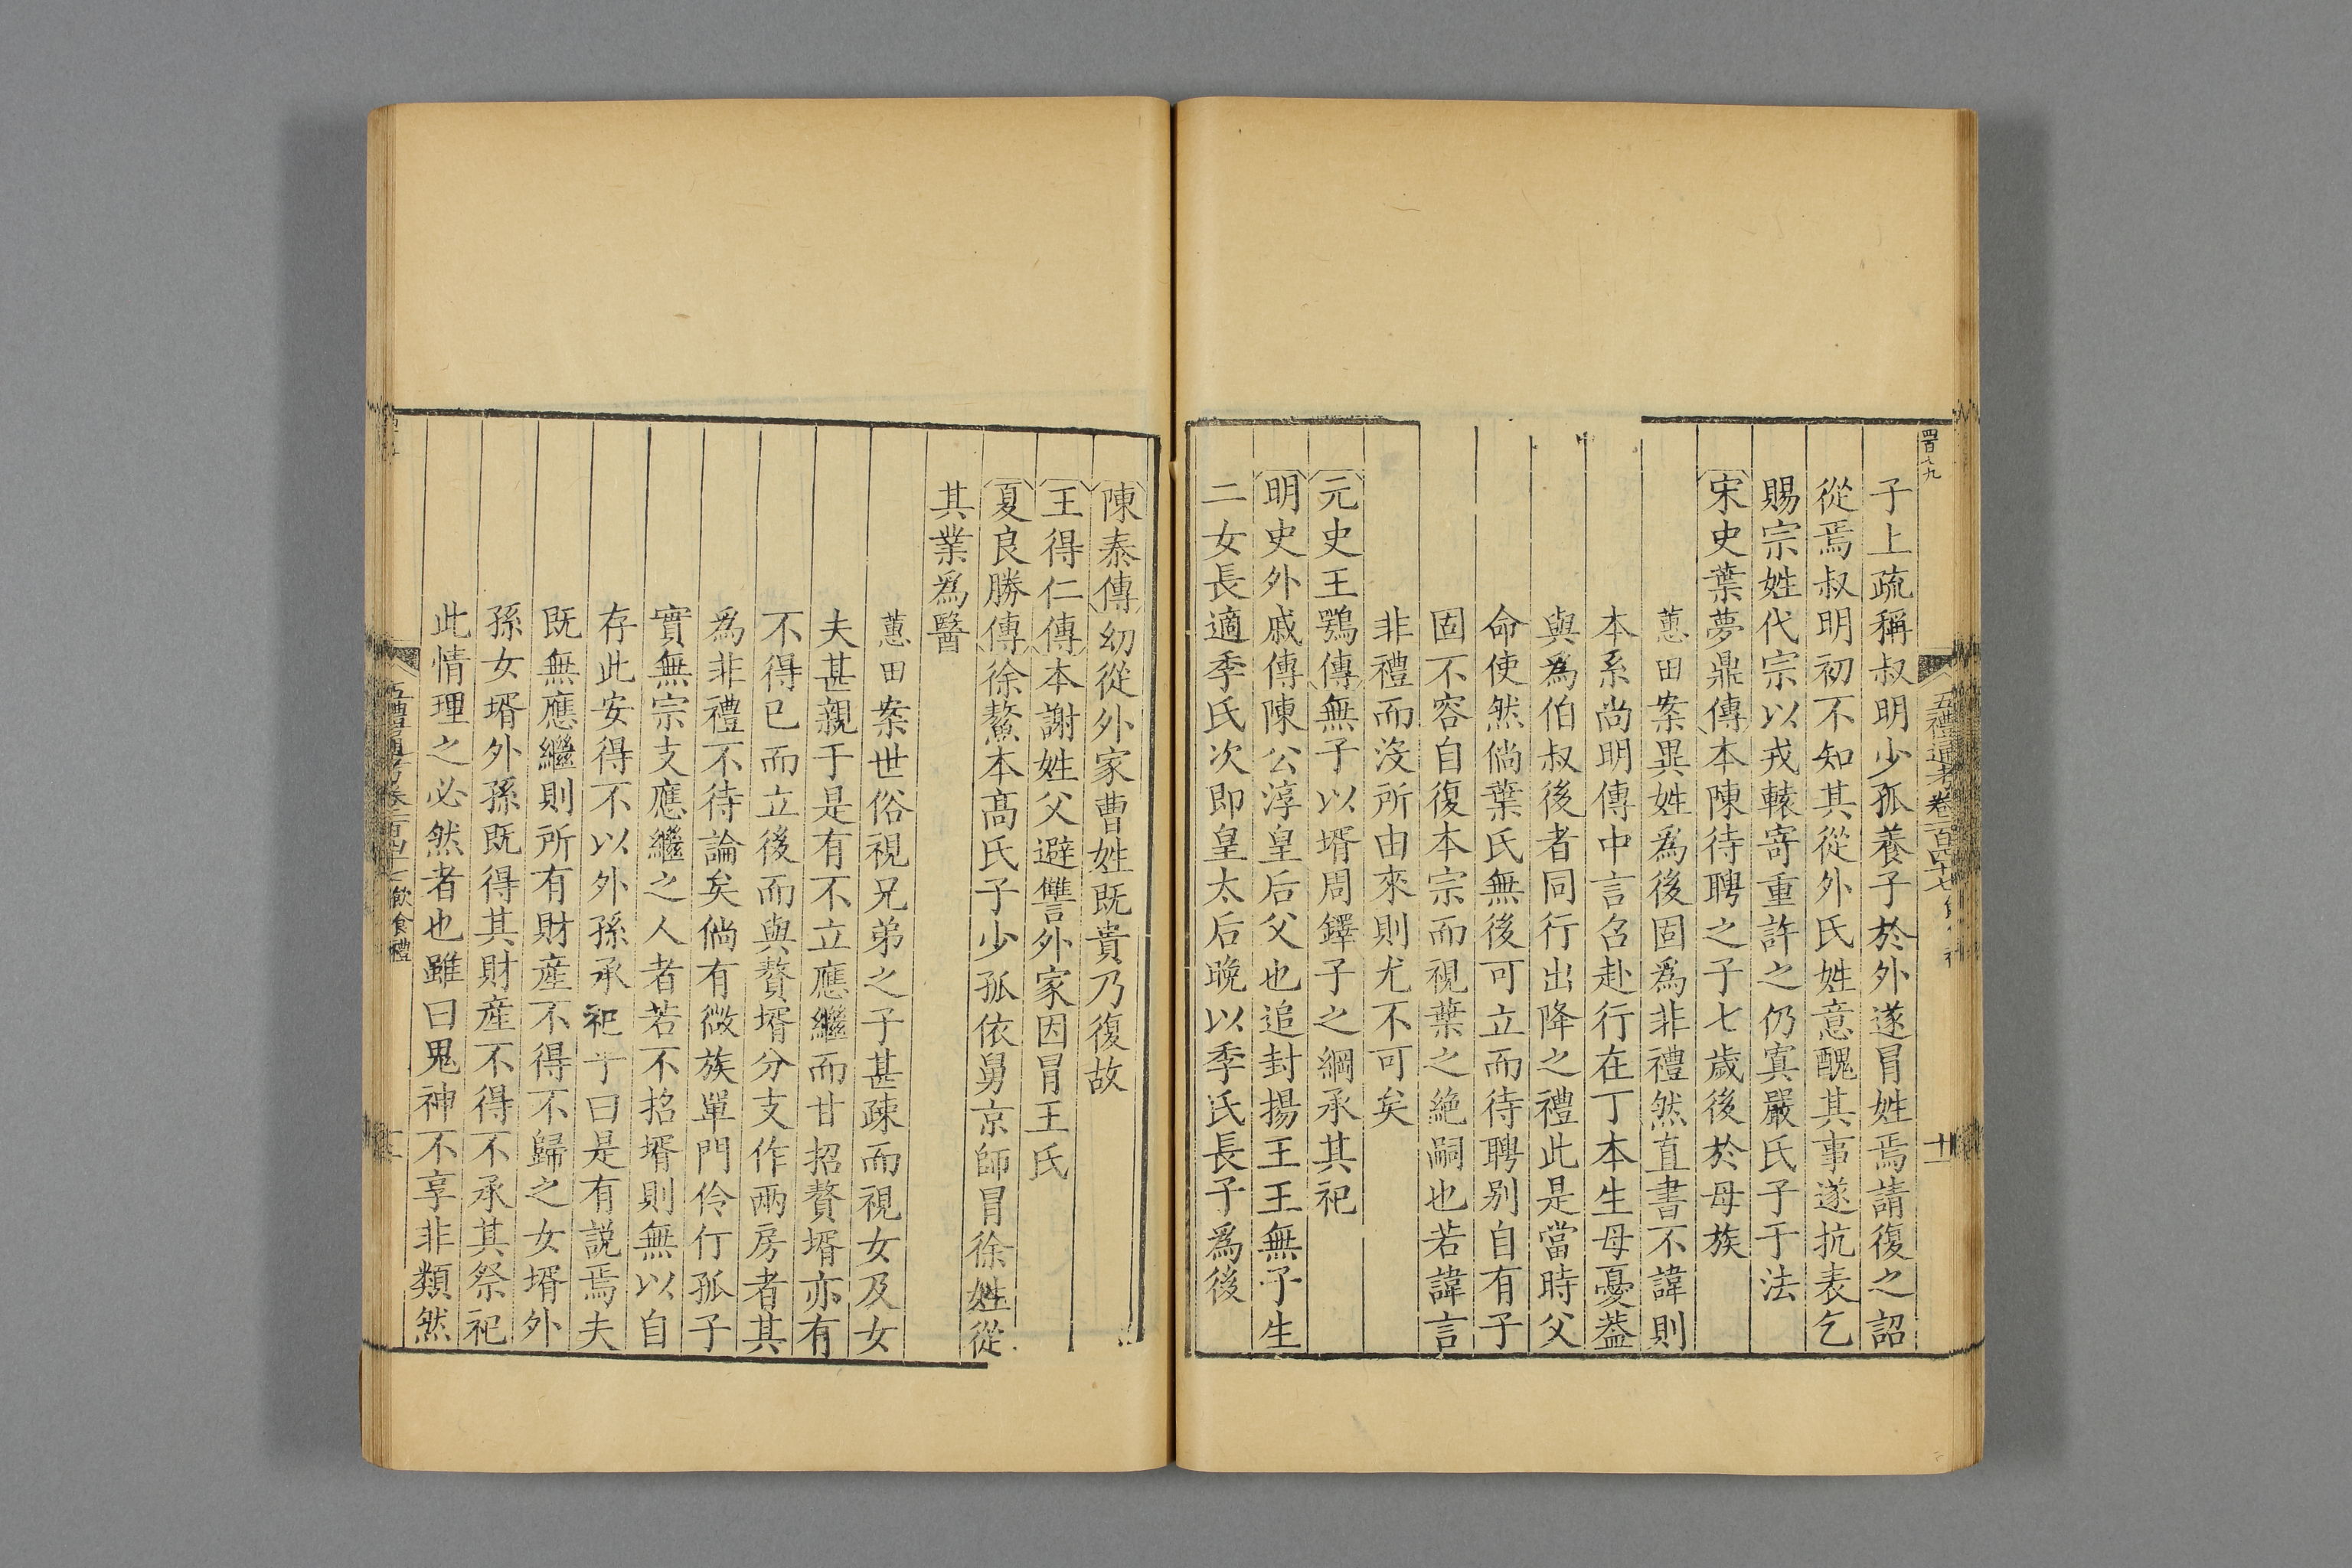 子上疏稱叔明少孤養子於外遂冒姓焉請復之詔
從焉叔明初不知其從外氏姓意醜其事遂抗表乞
賜宗姓代宗以戎轅寄重許之仍寘嚴氏子于法
宋史葉夢鼎傳本陳待聘之子七歲後於母族
蕙田案異姓爲後固爲非禮然直書不諱則
本系尚明傳中言召赴行在丁本生母憂葢
與爲伯叔後者同行出降之禮此是當時父
命使然倘葉氏無後可立而待聘别自有子
固不容自復本宗而視葉之絶嗣也若諱言
非禮而沒所由來則尤不可矣
元史王鶚傳無子以壻周鐸子之綱承其祀
明史外戚傳陳公淳皇后父也追封揚王王無子生
二女長適季氏次即皇太后晚以季氏長子爲後
五禮通考卷一百四十七
十一
陳泰傳幼從外家曹姓既貴乃復故
王得仁傳本謝姓父避讐外家因冒王氏
夏良勝傳徐鰲本高氏子少孤依舅京師冒徐姓從
其業爲醫
蕙田案世俗視兄弟之子甚疎而視女及女
夫甚親于是有不立應繼而甘招贅壻亦有
不得已而立後而與贅壻分支作兩房者其
爲非禮不待論矣倘有微族單門伶仃孤子
實無宗支應繼之人者若不招壻則無以自
存此安得不以外孫承祀乎曰是有説焉夫
既無應繼則所有財産不得不歸之女壻外
孫女壻外孫既得其財産不得不承其祭祀
此情理之必然者也雖曰鬼神不享非類然
飲食禮